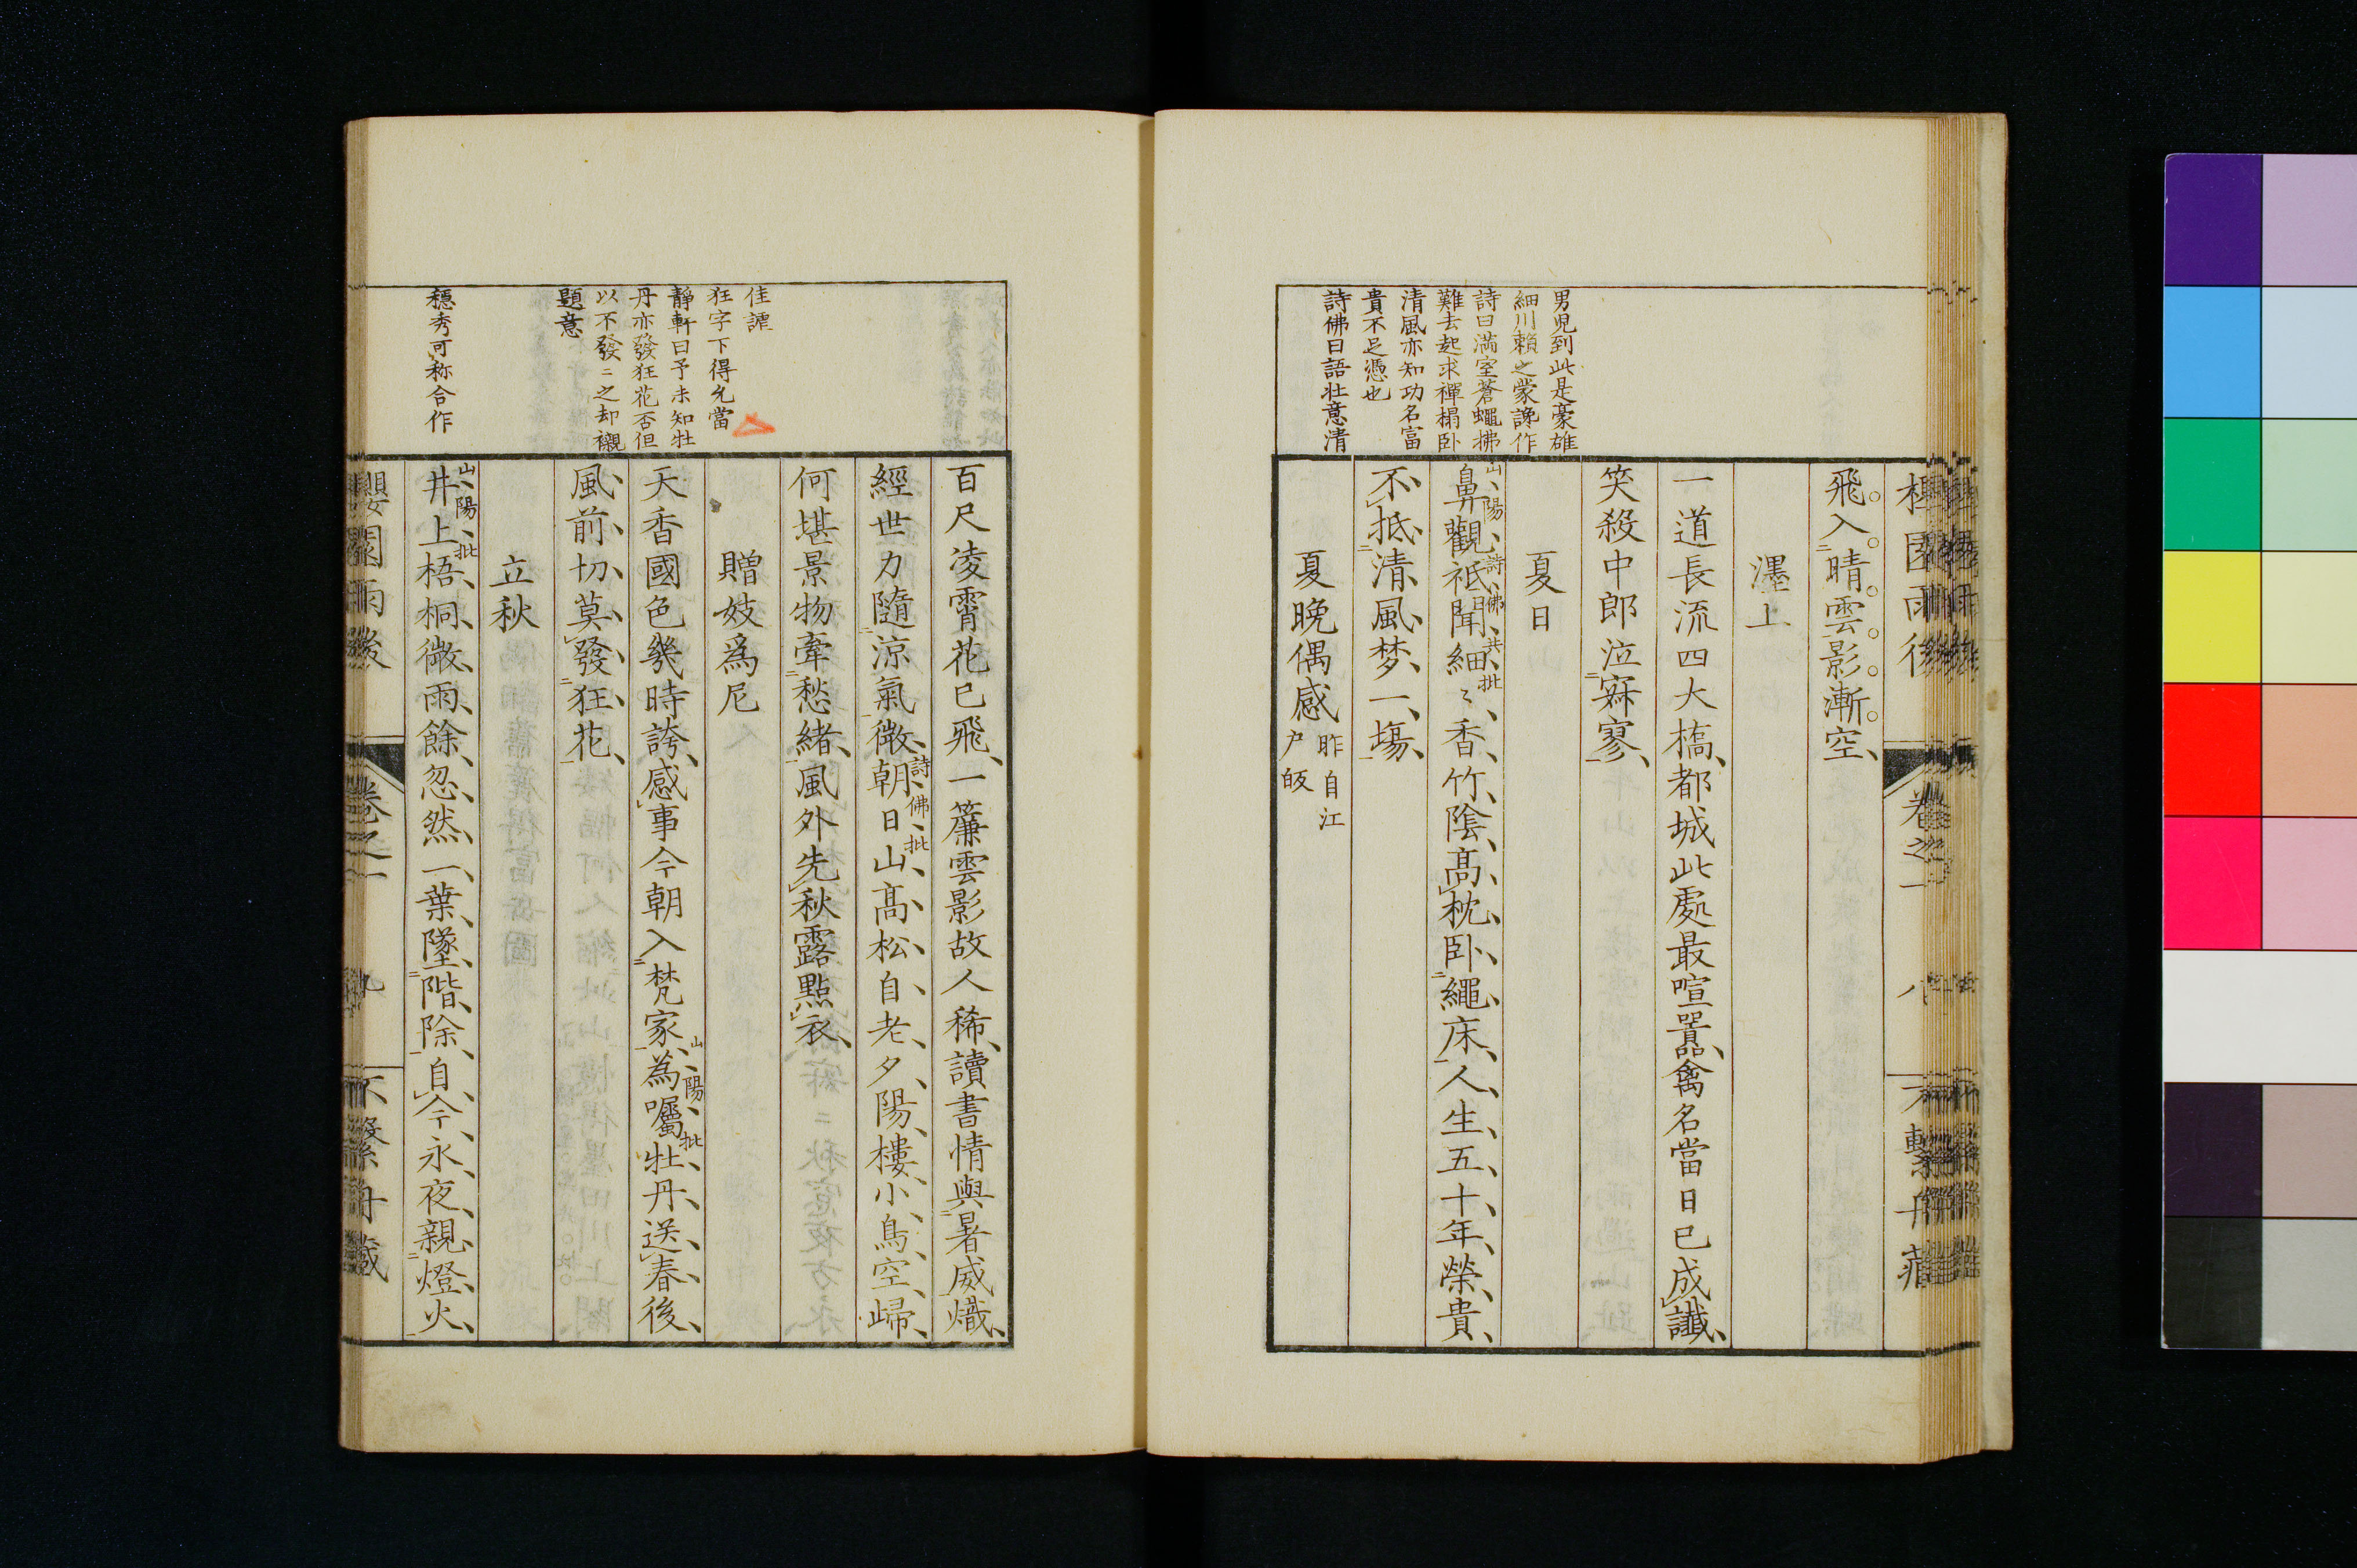 男児到此是豪雄
細川頼之蒙讒作
詩曰満室蒼蠅拂
難去起求禪榻卧
清風亦知功名富
貴不足憑也
詩佛曰語壮意清
飛入晴雲影漸空
濹上
一道長流四大橋都城此處最喧囂禽名當日已成讖
笑殺中郎泣寂寥
夏日
鼻觀祗聞細〻香竹陰高枕卧繩床人生五十年榮貴
山陽詩佛曰共批
不抵清風梦一場
夏晩偶感
昨自江
户皈
佳謔
狂字下得允當
靜軒曰予未知牡
丹亦發狂花否但
以不發〻之却襯
題意
穩秀可称合作
百尺凌霄花已飛一簾雲影故人稀讀書情與暑威熾
經世力隨涼氣微朝日山高松自老夕陽樓小鳥空歸
詩佛批
何堪景物牽愁緒風外先秋露點衣
贈妓為尼
天香國色幾時誇感事今朝入梵家為囑牡丹送春後
山陽批
風前切莫發狂花
立秋
井上梧桐微雨餘忽然一葉墜階除自今永夜親燈火
山陽批
卷之一